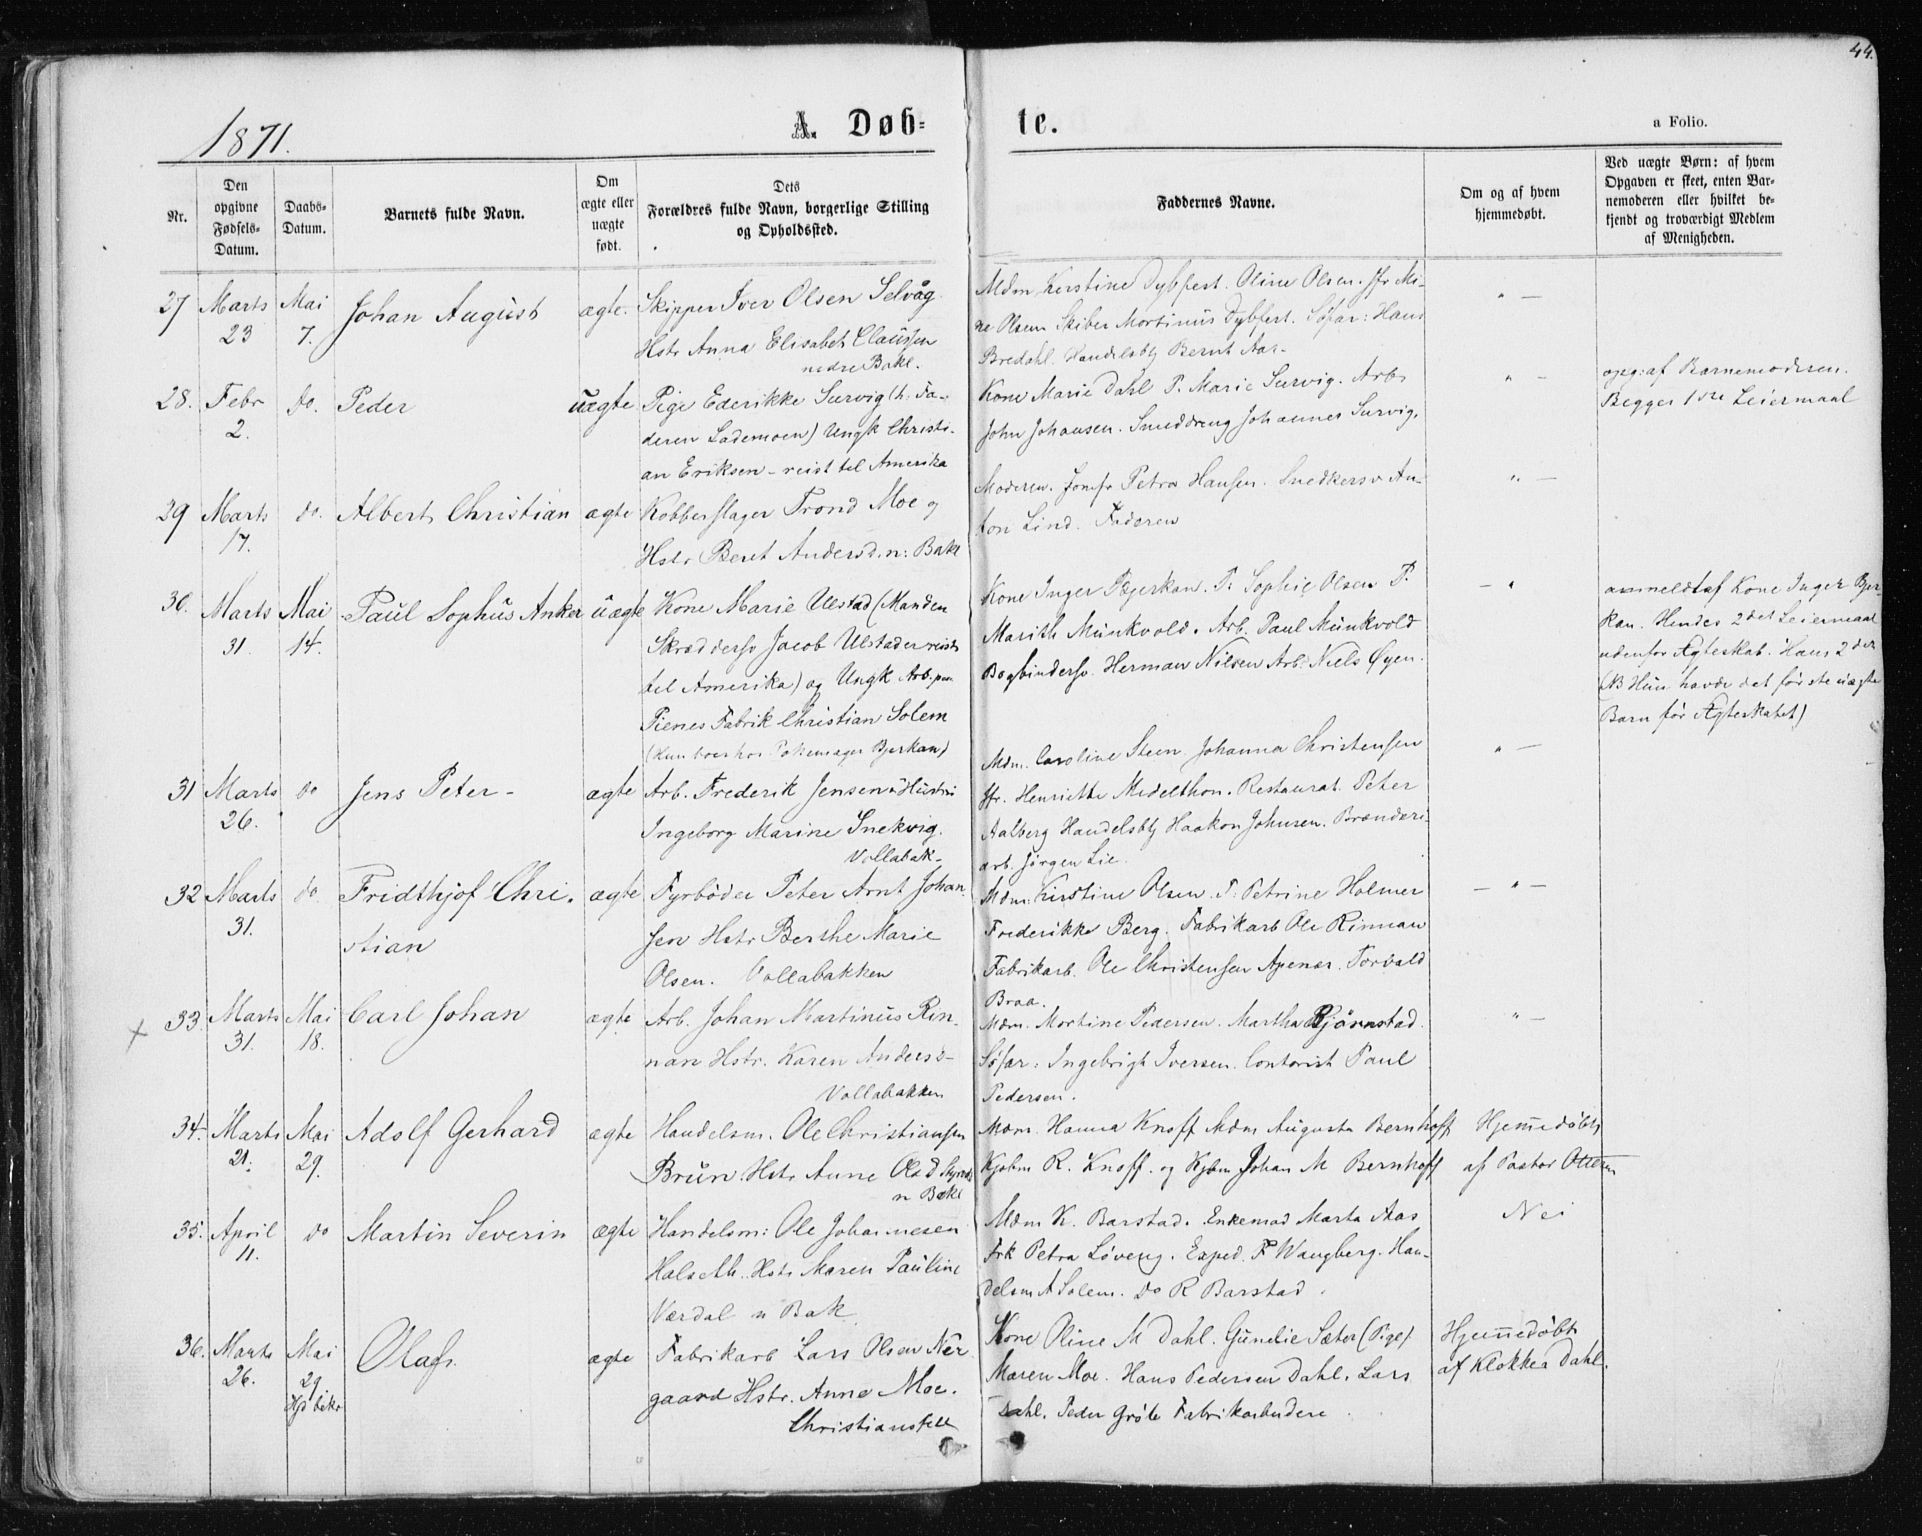 44.
1871.
A. Døb-
te.
a Folio.
Nr.
Den
opgivne
Fødsels-
Datum.
Daabs-
Datum.
Barnets fulde Navn.
Om
ægte eller
uægte
født.
Dets
Forældres fulde Navn, borgerlige Stilling
og Opholdssted.
Faddernes Navne.
Om og af hvem
hjemmedøbt.
Ved uægte Børn: af hvem
Opgaven er skeet, enten Bar-
nemoderen eller hvilket be-
kjendt og troværdigt Medlem
af Menigheden.
27 Marts 23 Mai 7. Johan August ægte.
Skipper Iver Olsen Selvåg
Hstr Anna Elisabet Claussen
nedre Bakl.
Mdm Kerstine Dybfest. Oline Olsen. Jfr Mi-
ne Olsen Skiber Mortinus Dybfest. Søfar: Hans
Bredahl. Handelsbtj Bernt Aas-
" —
28. Febr 2. do. Peder uægte
Pige Ederikke Survig (h: Fa-
deren Lademoen) Ungk Christi-
an Eriksen - reist til Amerika
Kone Marie Dahl P. Marie Survig. Arb
John Johansen. Smeddreng Johannes Survig.
" —
opg: af Barnemoderen.
Begges 1ste Leiermaal
29 Marts 17. do. Albert Christian ægte
Kobberslager Trond Moe og
Hstr Beret Andersd. n: Bakl
Moderen. Jomfr Petra Hansen. Snedkersv An-
ton Lind. Faderen
" —
30. Marts 31. Mai 14. Paul Sophus Anker uægte
Kone Marie Ulstad (Manden
Skræddersv Jacob Ulstad er reist
til Amerika) og Ungk Arb. paa
Pienes Fabrik Christian Solem
(Hun boer hos Pakemager Bjerkan)
Kone Inger Bjerkan. P: Sophie Olsen P.
Marith Munkvold. Arb. Paul Munkvold
Bogbindersv. Herman Nilsen Arb. Niels Øyen.
— "
anmeldt af Kone Inger Bjer-
kan. Hendes 2det Leiermaal
udenfor Ægteskab. Hans 2det
(NB Hun havde det første uægte
Barn før Ægteskabet)
31 Marts 26. do Jens Peter - ægte
Arb. Frederik Jensen & Hustru
Ingeborg Marine Snekvig.
Vollabak-
Mdm. Caroline Steen. Johanna Christensen
Jfr. Henriette Medelthon. Restaurat. Peter
Aalberg Handelsbtj Haakon Johnsen. Brænderi-
arb. Jørgen Lie.
" —
32 Marts 31. do Fridthjof Chri-
stian ægte
Fyrbøder Peter Arnt Johan-
sen Hstr Berthe Marie
Olsen. Vollabakken
Mdm: Kirstine Olsen. P: Petrine Holmer
Frederikke Berg. Fabrikarb Ole Rinnan
Fabrikarb. Ole Christensen Apenæs. Torvald
Braa.
— " —
33 Marts 31. Mai 18. Carl Johan ægte
Arb. Johan Martinus Rin-
nan Hstr. Karen Anders's-
Vollabakken
Mdm. Mortine Pedersen. Martha Bjørnstad.
Søfar: Ingebrigt Iversen. Contorist Paul
Pedersen.
" —
34. Marts 21. Mai 29. Adolf Gerhard ægte
Handelsm. Ole Christiansen
Brun. Hstr Anne
n Bakl
Mdm. Hanna Knoff Mdm Augusta Bernhoff
Kjøbm R. Knoff. og Kjøbm Johan M Bernhoff
Hjemmedøbt
af Pastor
35. April 11. do Martin Severin ægte
Handelsm: Ole Johannesen
Halseth. Hstr Maren Pauline
Værdal n Bak
Mdm K. Barstad. Enkemad Marta Aas
Frk Petra Løveng. Exped. F Wangberg. Han-
delsm A Solem. do R Barstad.
Nei
36. Marts 26. Mai 29 Olaf. ægte
Fabrikarb Lars Olsen Ner-
gaard Hstr. Anne Moe.
Christiansfell
Kone Oline M Dahl. Gunelie Sæter (Pige)
Maren Moe. Hans Pedersen Dahl. Lars
Dahl. Peder Grøte Fabrikarbeidere.
Hjemmedøbt
af Klokker Dahl.